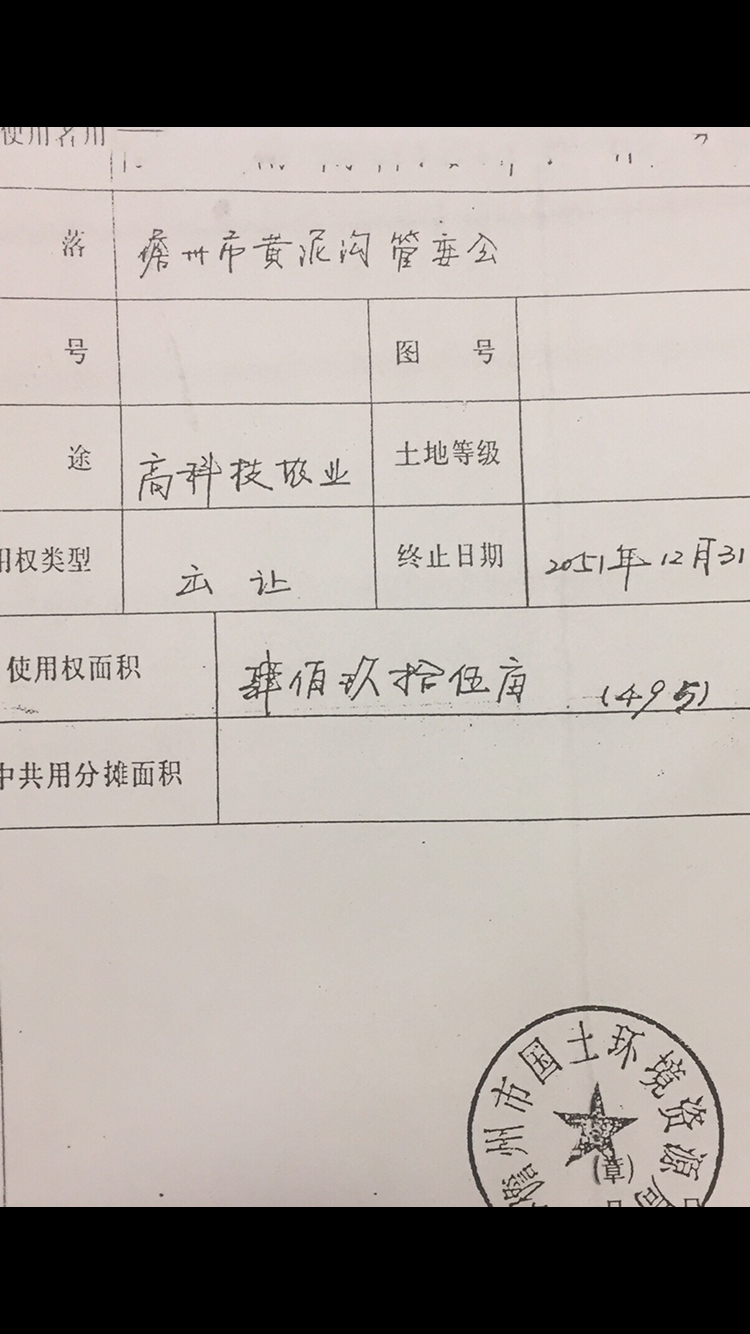 使用者用
落 儋州市黄泥沟管委会
号 图 号
途 高科技农业 土地等级
用权类型 出让 终止日期 2051年12月31
使用权面积 肆佰玖拾伍亩 (495)
中共用分摊面积
儋州市国土环境资源局
(章)